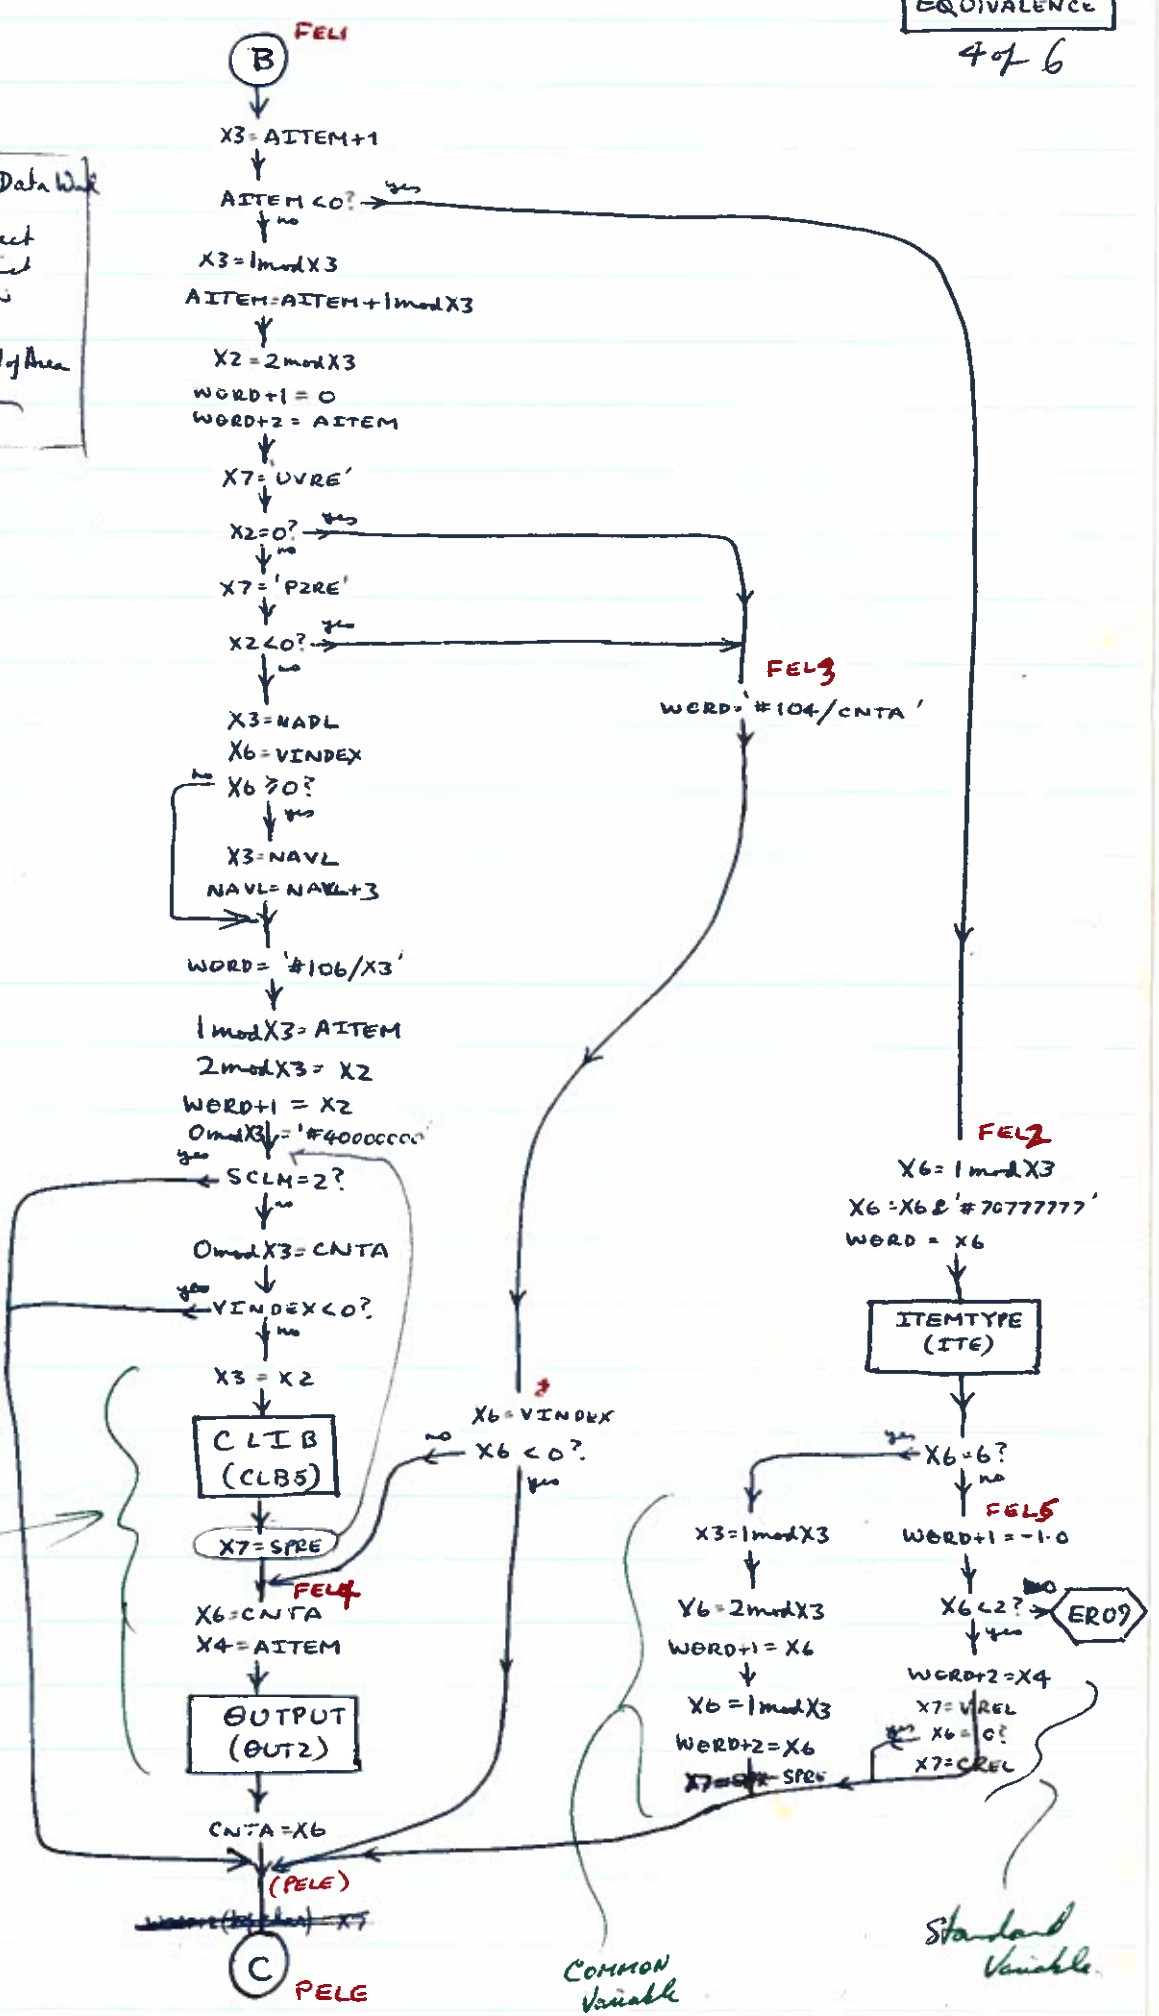 EQUIVALENCE
4 of 6
FEL1
B
X3 = AITEM+1
AITEM <0? yes
no
X3 = 1modX3
AITEM = AITEM + 1modX3
X2 = 2modX3
WORD+1 = 0
WORD+2 = AITEM
X7 = 'UVRE'
X2=0? yes
no
X7 = 'PZRE'
X2<0? yes
no
X3=NADL
X6=VINDEX
no X6 ≥0?
yes
X3=NAVL
NAVL=NAVL+3
WORD= '#106/X3'
1modX3= AITEM
2modX3= X2
WORD+1 = X2
0modX3 = '#40000000'
yes SCLM=2?
no
0modX3=CNTA
yes VINDEX<0?
no
X3 = X2
CLIB
(CLB5)
X7=SPRE
FEL4
X6=CNTA
X4=AITEM
OUTPUT
(OUT2)
CNTA=X6
(PELE)
C
PELE
Data
of Area
FEL3
WORD= '#104/CNTA'
X6=VINDEX
no X6 <0?
yes
FEL2
X6=1modX3
X6=X6&'#70777777'
WORD = X6
ITEMTYPE
(ITE)
yes X6=6?
no
X3=1modX3
X6=2modX3
WORD+1=X6
X6=1modX3
WORD+2=X6
SPRE
FEL5
WORD+1=-1.0
X6<2? NO
ER09
yes
WORD+2=X4
X7=VREL
yes X6=0?
X7=CREL
COMMON
Variable
Standard
Variable.